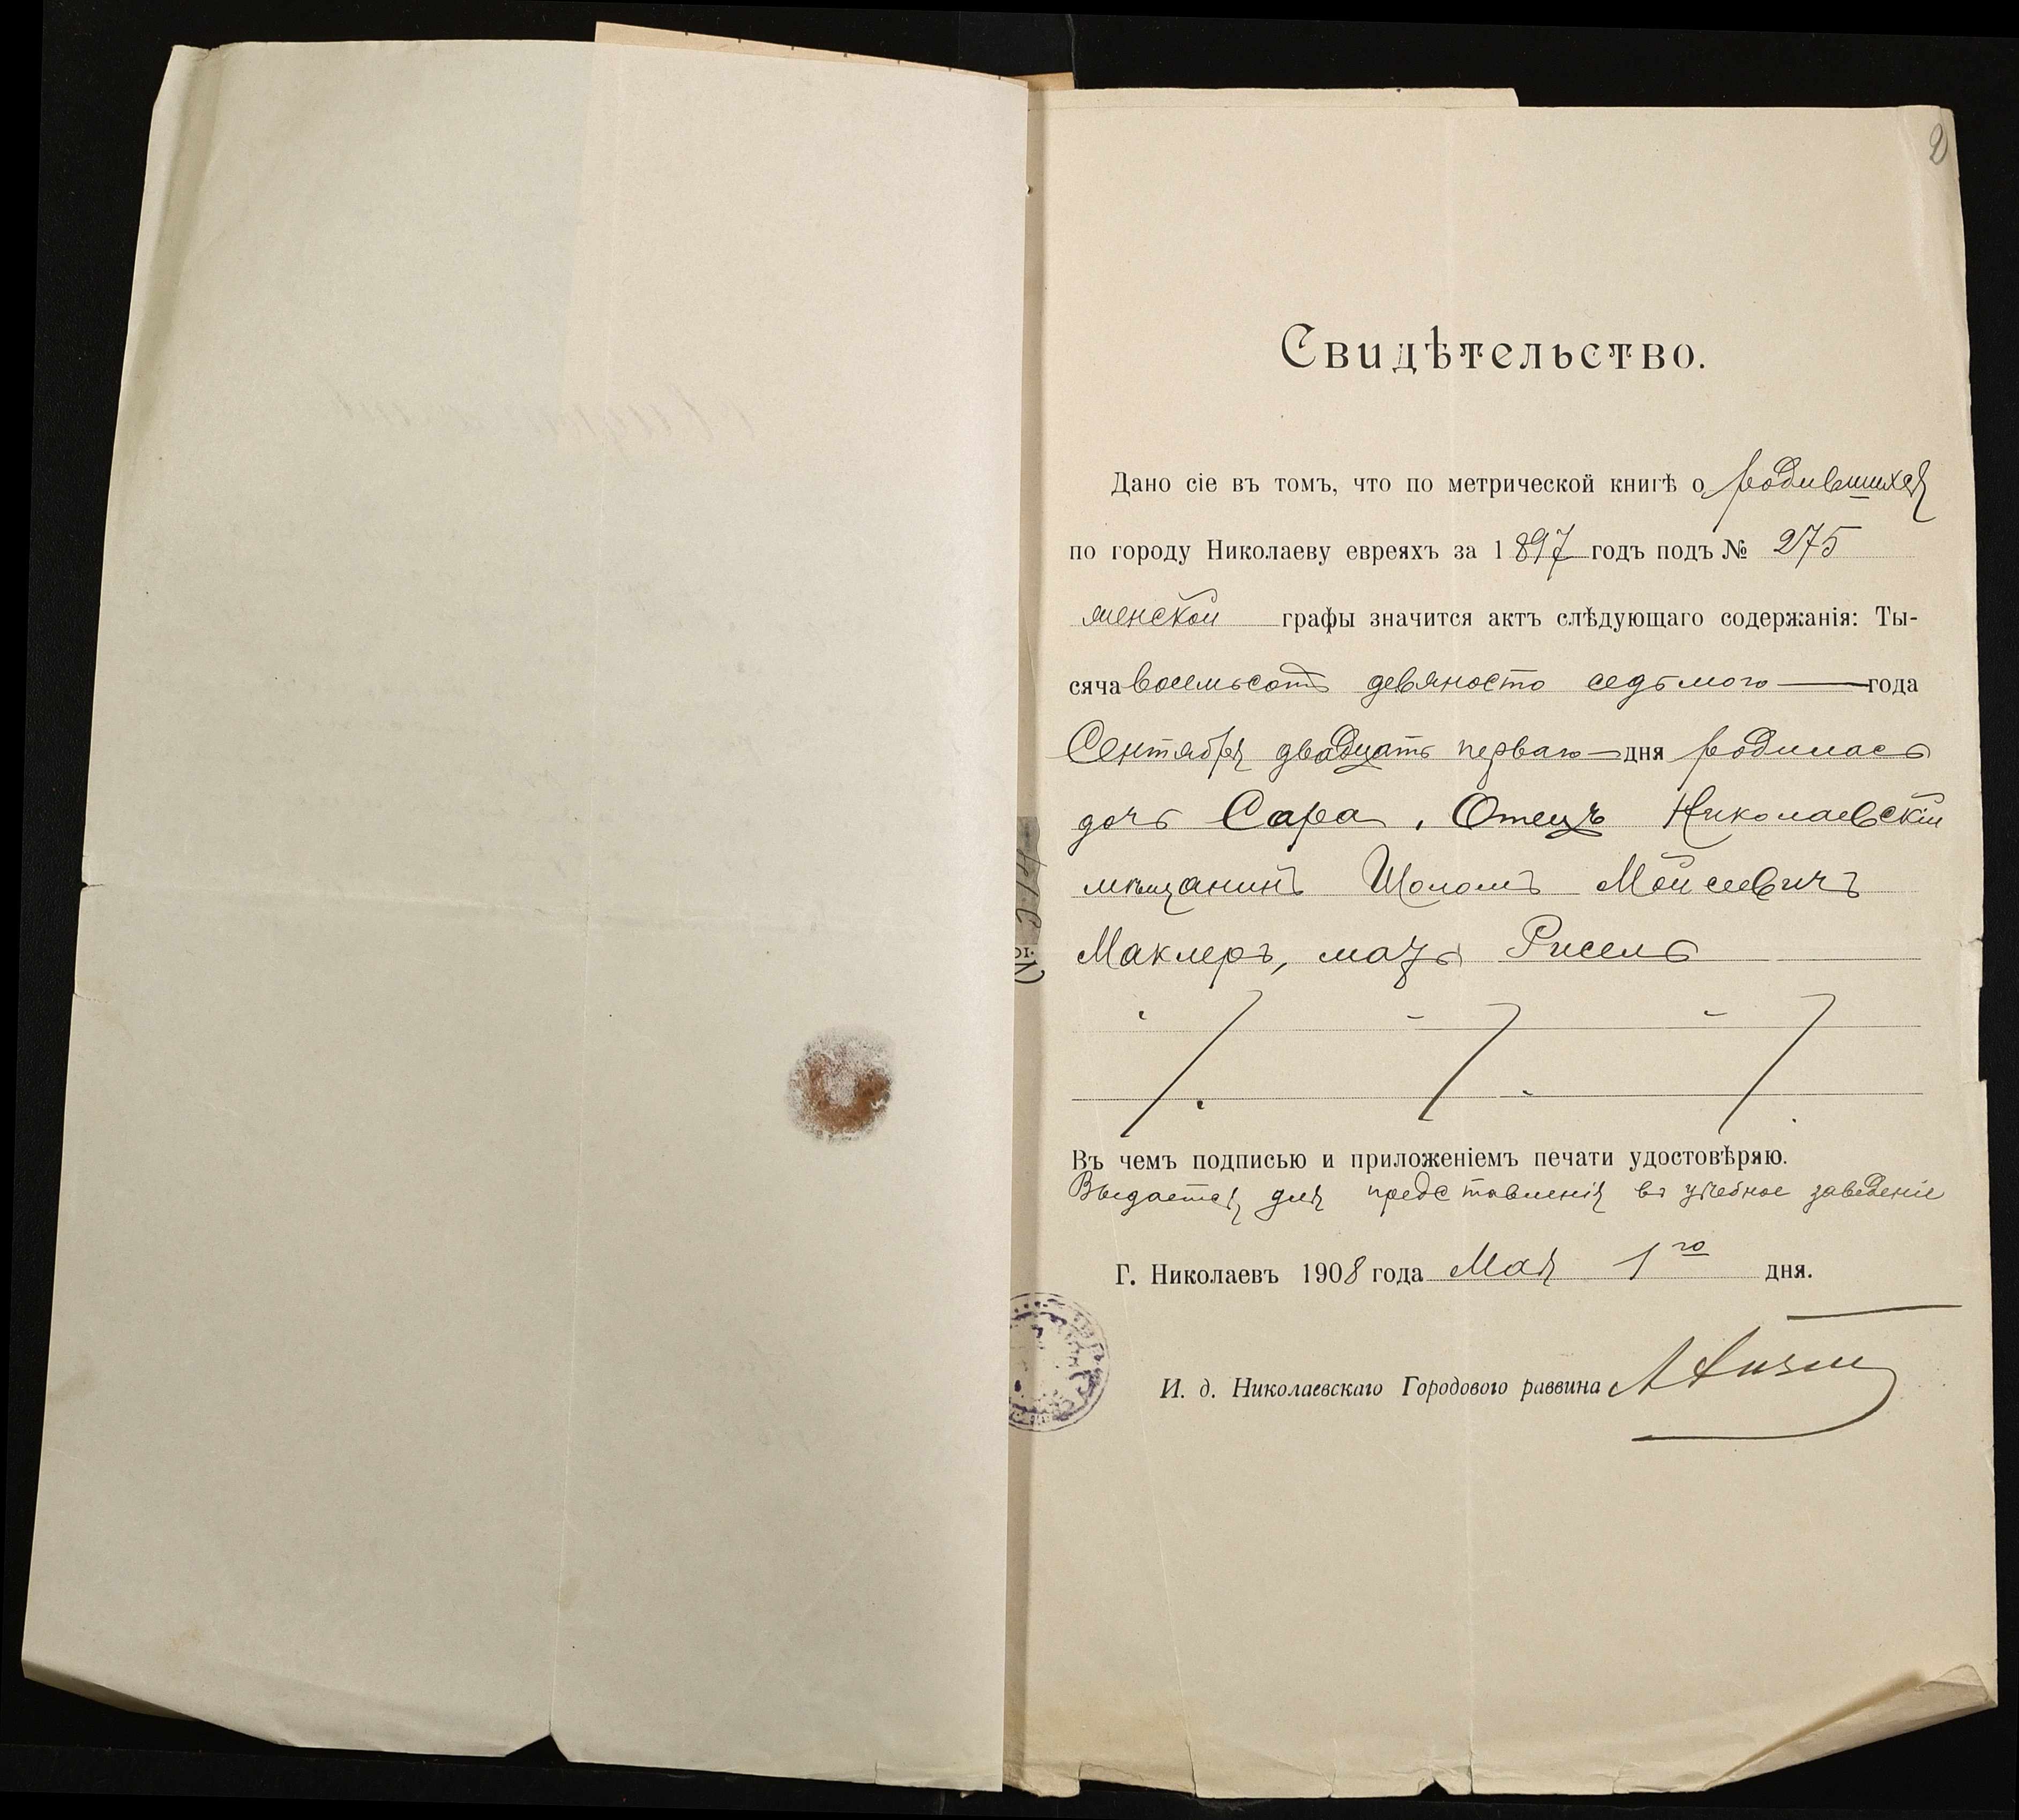 2
Свидѣтельство.
Дано сіе въ томъ, что по метрической книгѣ о родившихся
по городу Николаеву евреяхъ за 1897 годъ подъ № 275
женской графы значится актъ слѣдующаго содержанія: Ты-
сяча восемьсотъ девяносто седьмого года
Сентября двадцать перваго дня родилась
дочь Сара, Отецъ Николаевскій
мѣщанинъ Шоломъ Мойсеевичъ
Маклеръ, мать Рисель
Въ чемъ подписью и приложеніемъ печати удостовѣряю.
Выдается для представленія въ учебное заведеніе
Г. Николаевъ 1908 года Мая 1го дня.
И. д. Николаевскаго Городового раввина